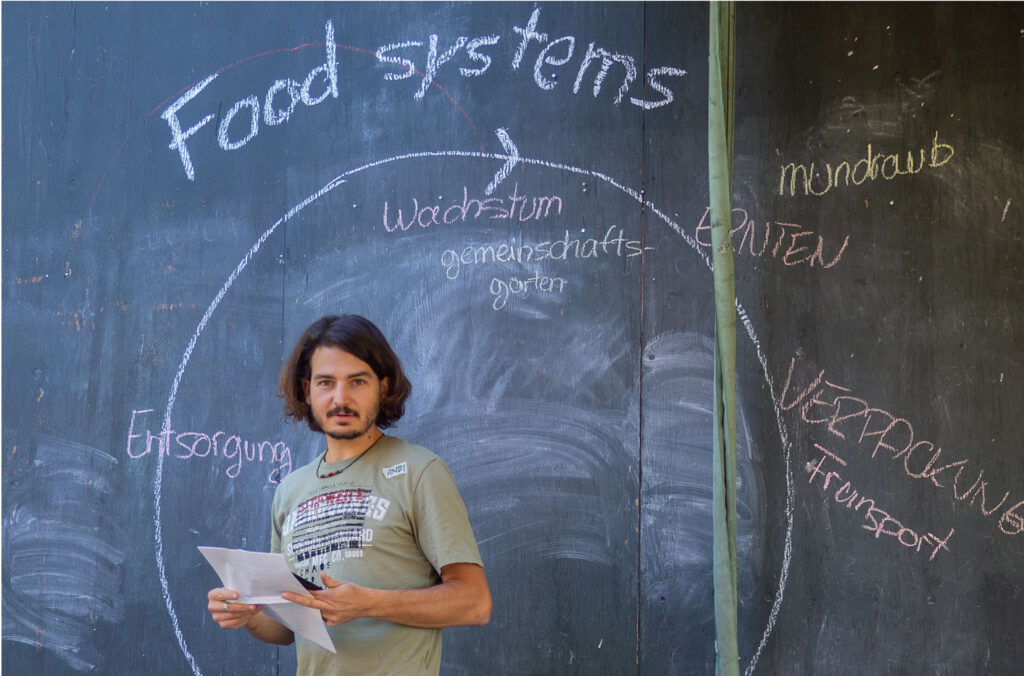 Food systems
mundraub
Wachstum
ERNTEN
gemeinschafts-
garten
VERPACKUNG
Transport
Entsorgung
ANDI
CHAOS